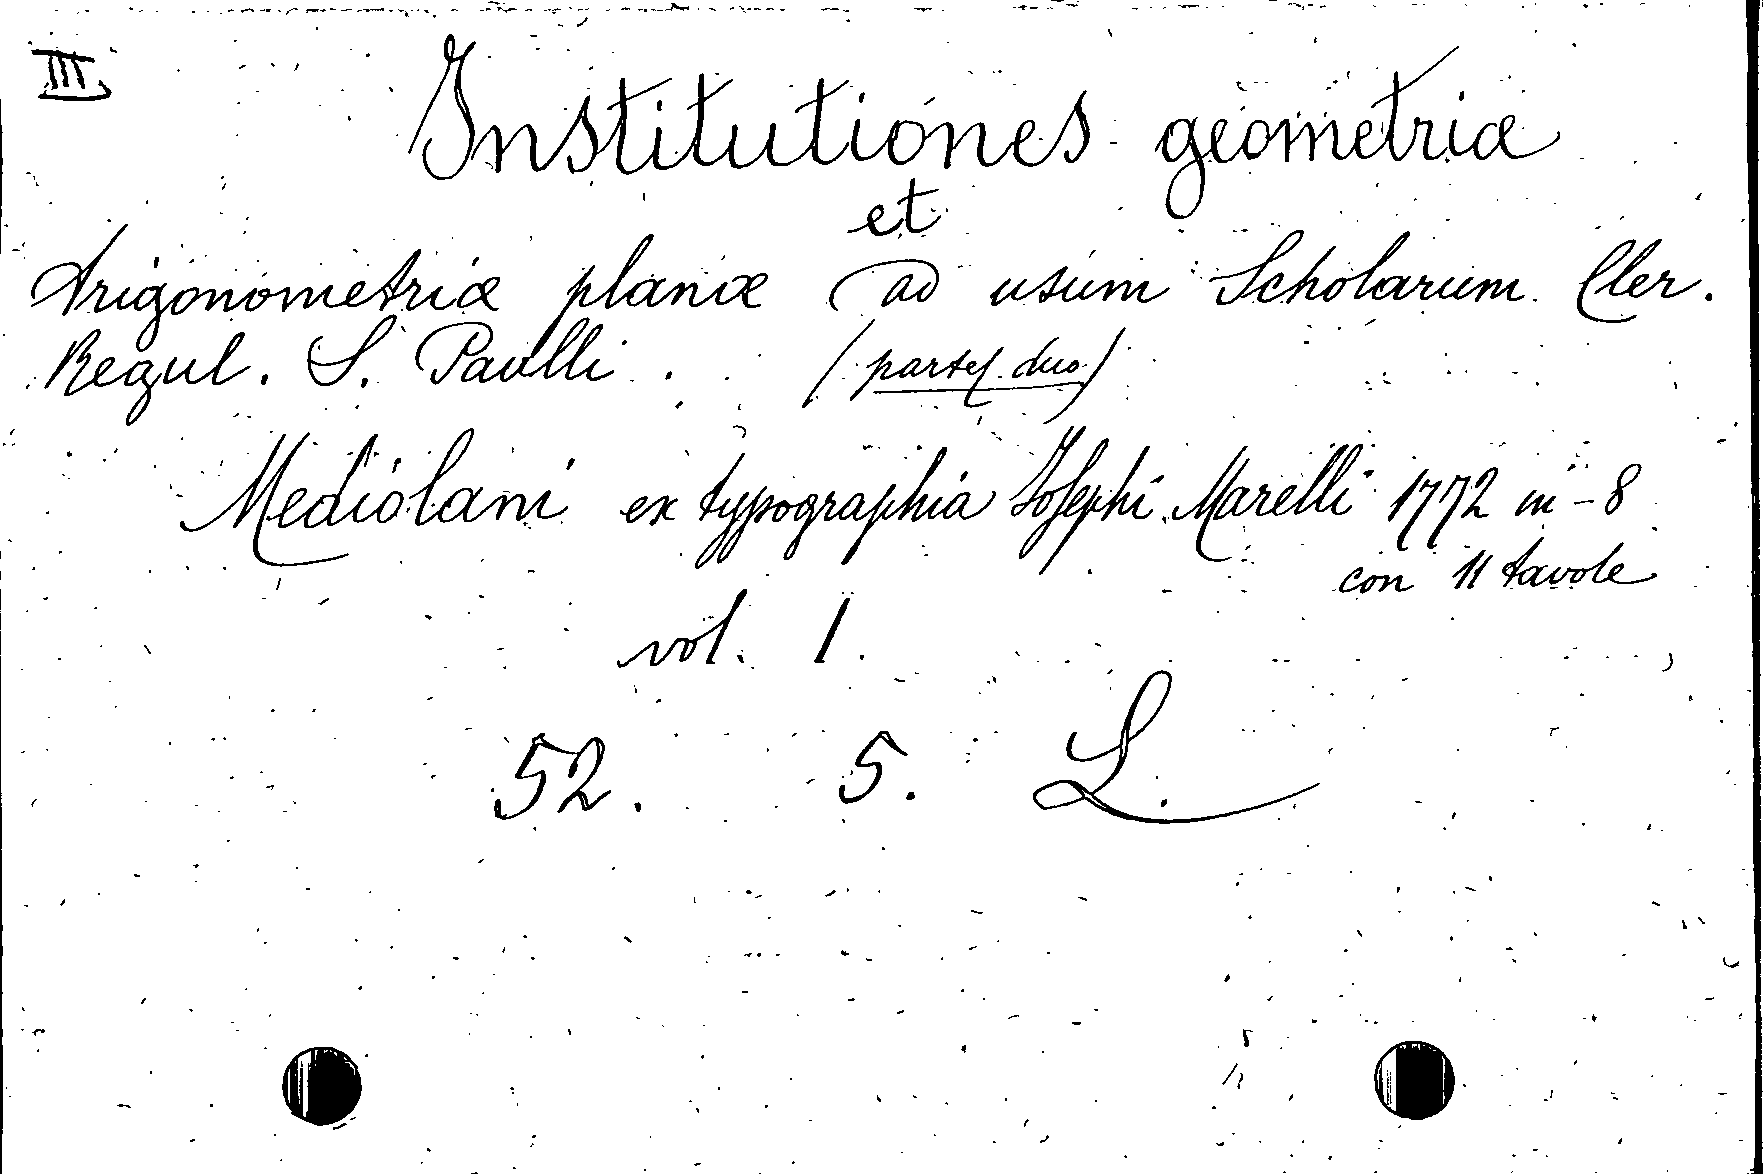 III
Institutiones geometriæ
et
trigonometriæ planæ ad usum Scholarum Cler.
Regul. S. Paulli. (partes duo)
Mediolani ex typographia Josephi Marelli 1772 in-8
con 11 tavole
vol. 1.
52. 5. L.